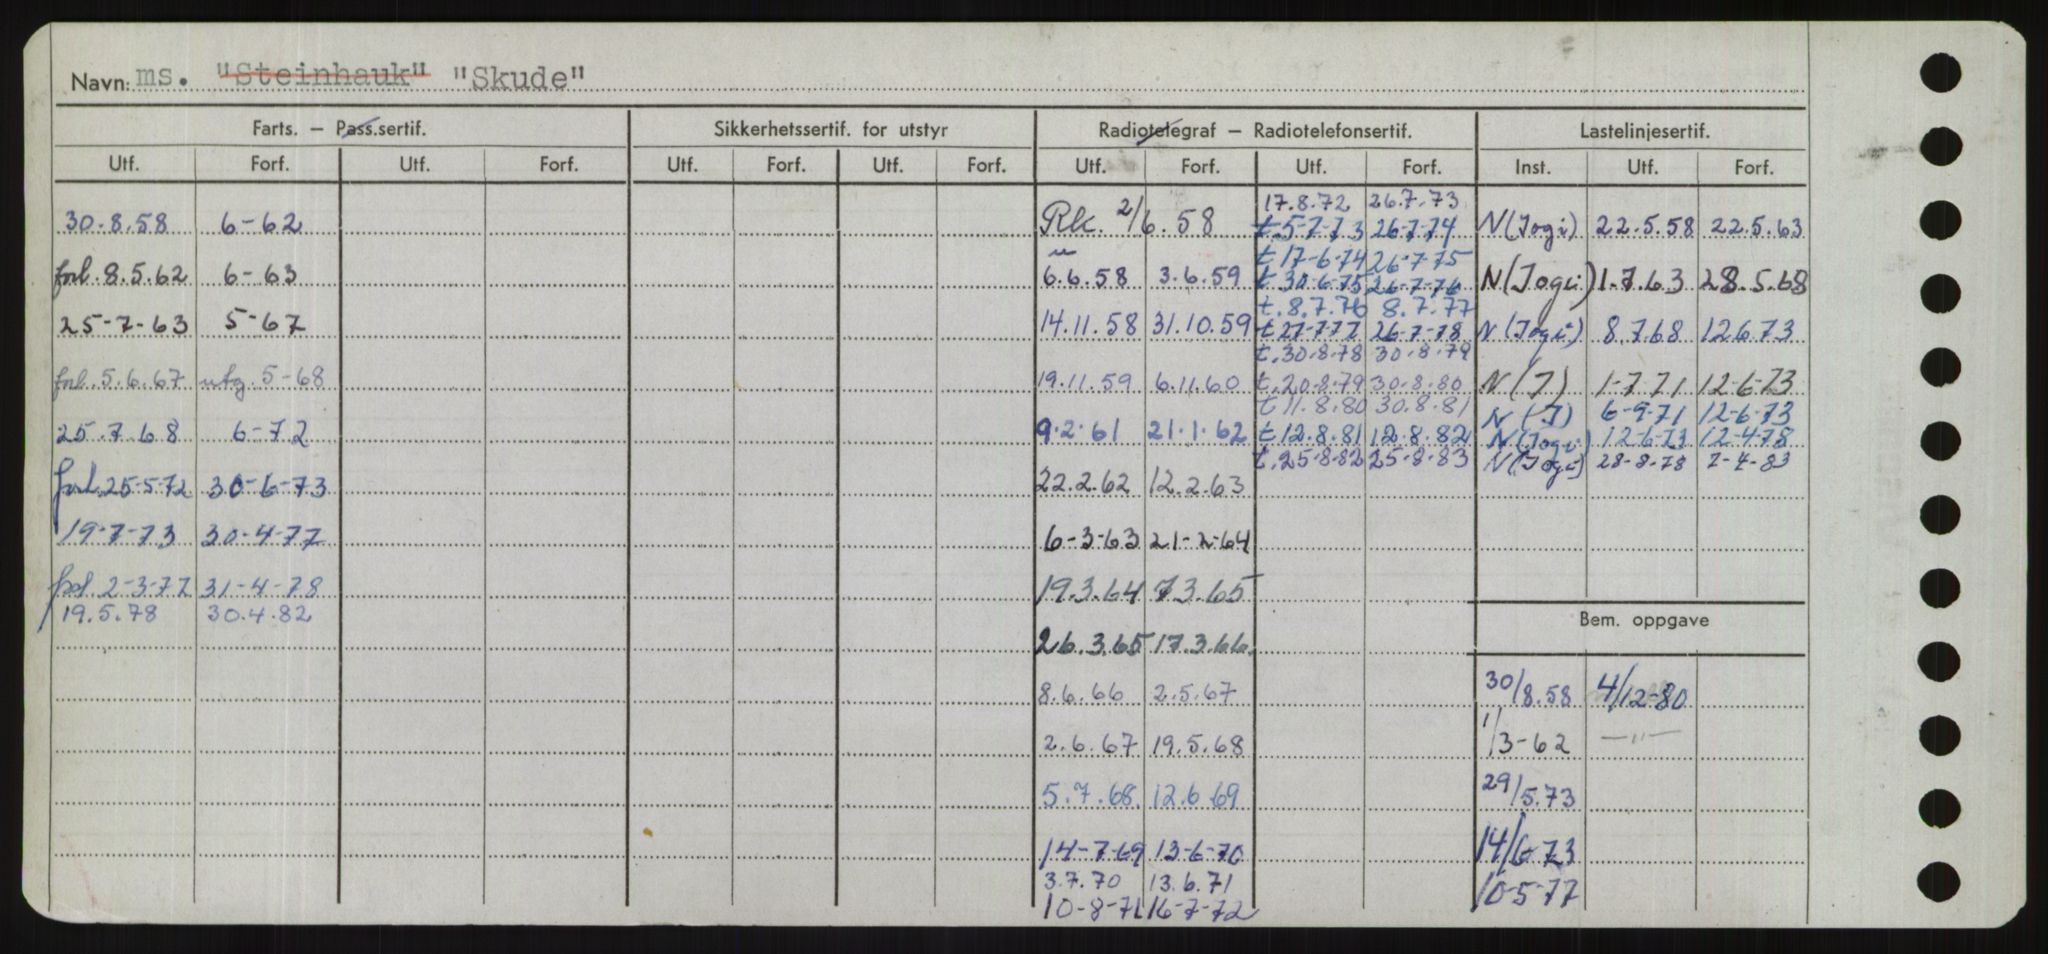 Navn: ms. "Steinhauk" "Skude"
Farts. – Pass.sertif. Sikkerhetssertif. for utstyr Radiotelegraf – Radiotelefonsertif. Lastelinjesertif.
Utf. Forf. Utf. Forf. Utf. Forf. Utf. Forf. Utf. Forf. Utf. Forf. Inst. Utf. Forf.
30.8.58 6-62
forl. 8.5.62 6-63
25-7-63 5-67
forl. 5.6.67 utg. 5-68
25.7.68 6-72
forl. 25-5-72 30-6-73
19-7-73 30-4-77
forl. 2-3-77 31-4-78
19.5.78 30.4.82
Rk. 2/6.58
"
6.6.58 3.6.59
14.11.58 31.10.59
19.11.59 6.11.60
9.2.61 21.1.62
22.2.62 12.2.63
6-3-63 21-2-64
19.3.64 7.3.65
26.3.65 17.3.66.
8.6.66 2.5.67
2.6.67 19.5.68
5.7.68 12.6.69
14-7-69 13-6-70
3.7.70 13.6.71
10-8-71 16-7-72
17.8.72 26.7.73
t.5-7-73 26-7-74
t 17-6-74 26-7-75
t.30-6-75 26-7-76
t.8.7.76 8.7.77
t 27-7-77 26-7-78
t.30-8-78 30-8-79
t.20-8-79 30-8-80
t 11.8.80 30.8.81
t 12.8.81 12.8.82
t.25-8-82 25-8-83
N(Jogi) 22.5.58 22.5.63
N(Jogi) 1.7.63 28.5.68
N(Jogi) 8.7.68 12.6.73
N(J) 1-7-71 12-6-73
N(J) 6-9-71 12-6-73
N(Jogi) 12-6-73 12-4-78
N(Jogi) 28-8-78 7-4-83
Bem. oppgave
30/8.58 4/12-80
1/3-62 —"—
29/5.73
14/6-73
10-5-77